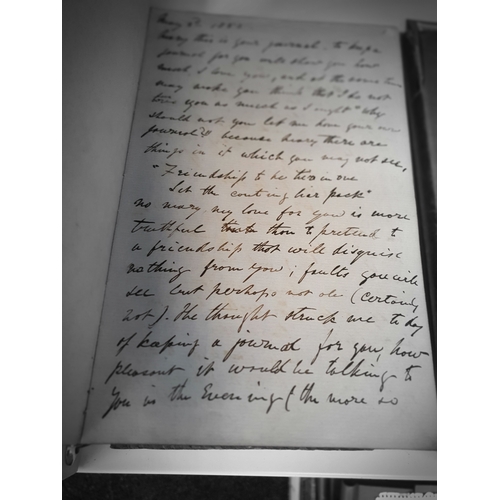 May 3d. 1882
Mary this is your journal, to keep a
journal for you will show you how
much I love you, and at the same time
may make you think that I do not
love you as much as I ought "Why
should not you let me have your own
journal?" because Mary there are
things in it which you may not see,
"Friendship to be two in one
Let the canting liar pack"
no Mary my love for you is more
truthful than to pretend to
a friendship that will disguise
nothing from you; faults you will
see but perhaps not all (certainly
not). The thought struck me today
of keeping a journal for you, how
pleasant it would be talking to
you in the Evening (the more so